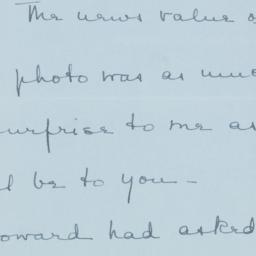 The news value o
photo was as muc
urprise to me as
l be to you –
oward had asked